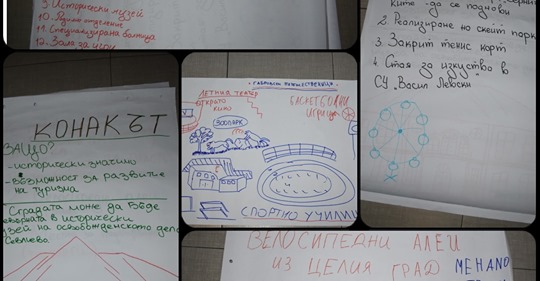 9. Исторически музей
10. Родилно отделение
11. Специализирана болница
12. Зала за игри
КОНАКЪТ
ЗАЩО?
- исторически значимо
- възможност за развитие
на туризма
Сградата може да бъде
в исторически
музей на освобожденското дело
Севлиево.
ЛЕТНИЯ ТЕАТЪР
ОТКРИТО
КИНО
ЗООПАРК
БАСКЕТБОЛНИ
ИГРИЩА
СПОРТНО УЧИЛИЩЕ
да се поднови
2. Реализиране на скейт парк
3. Закрит тенис корт
4. Стая за изкуство в
СУ „Васил Левски"
ВЕЛОСИПЕДНИ АЛЕИ
ИЗ ЦЕЛИЯ ГРАД